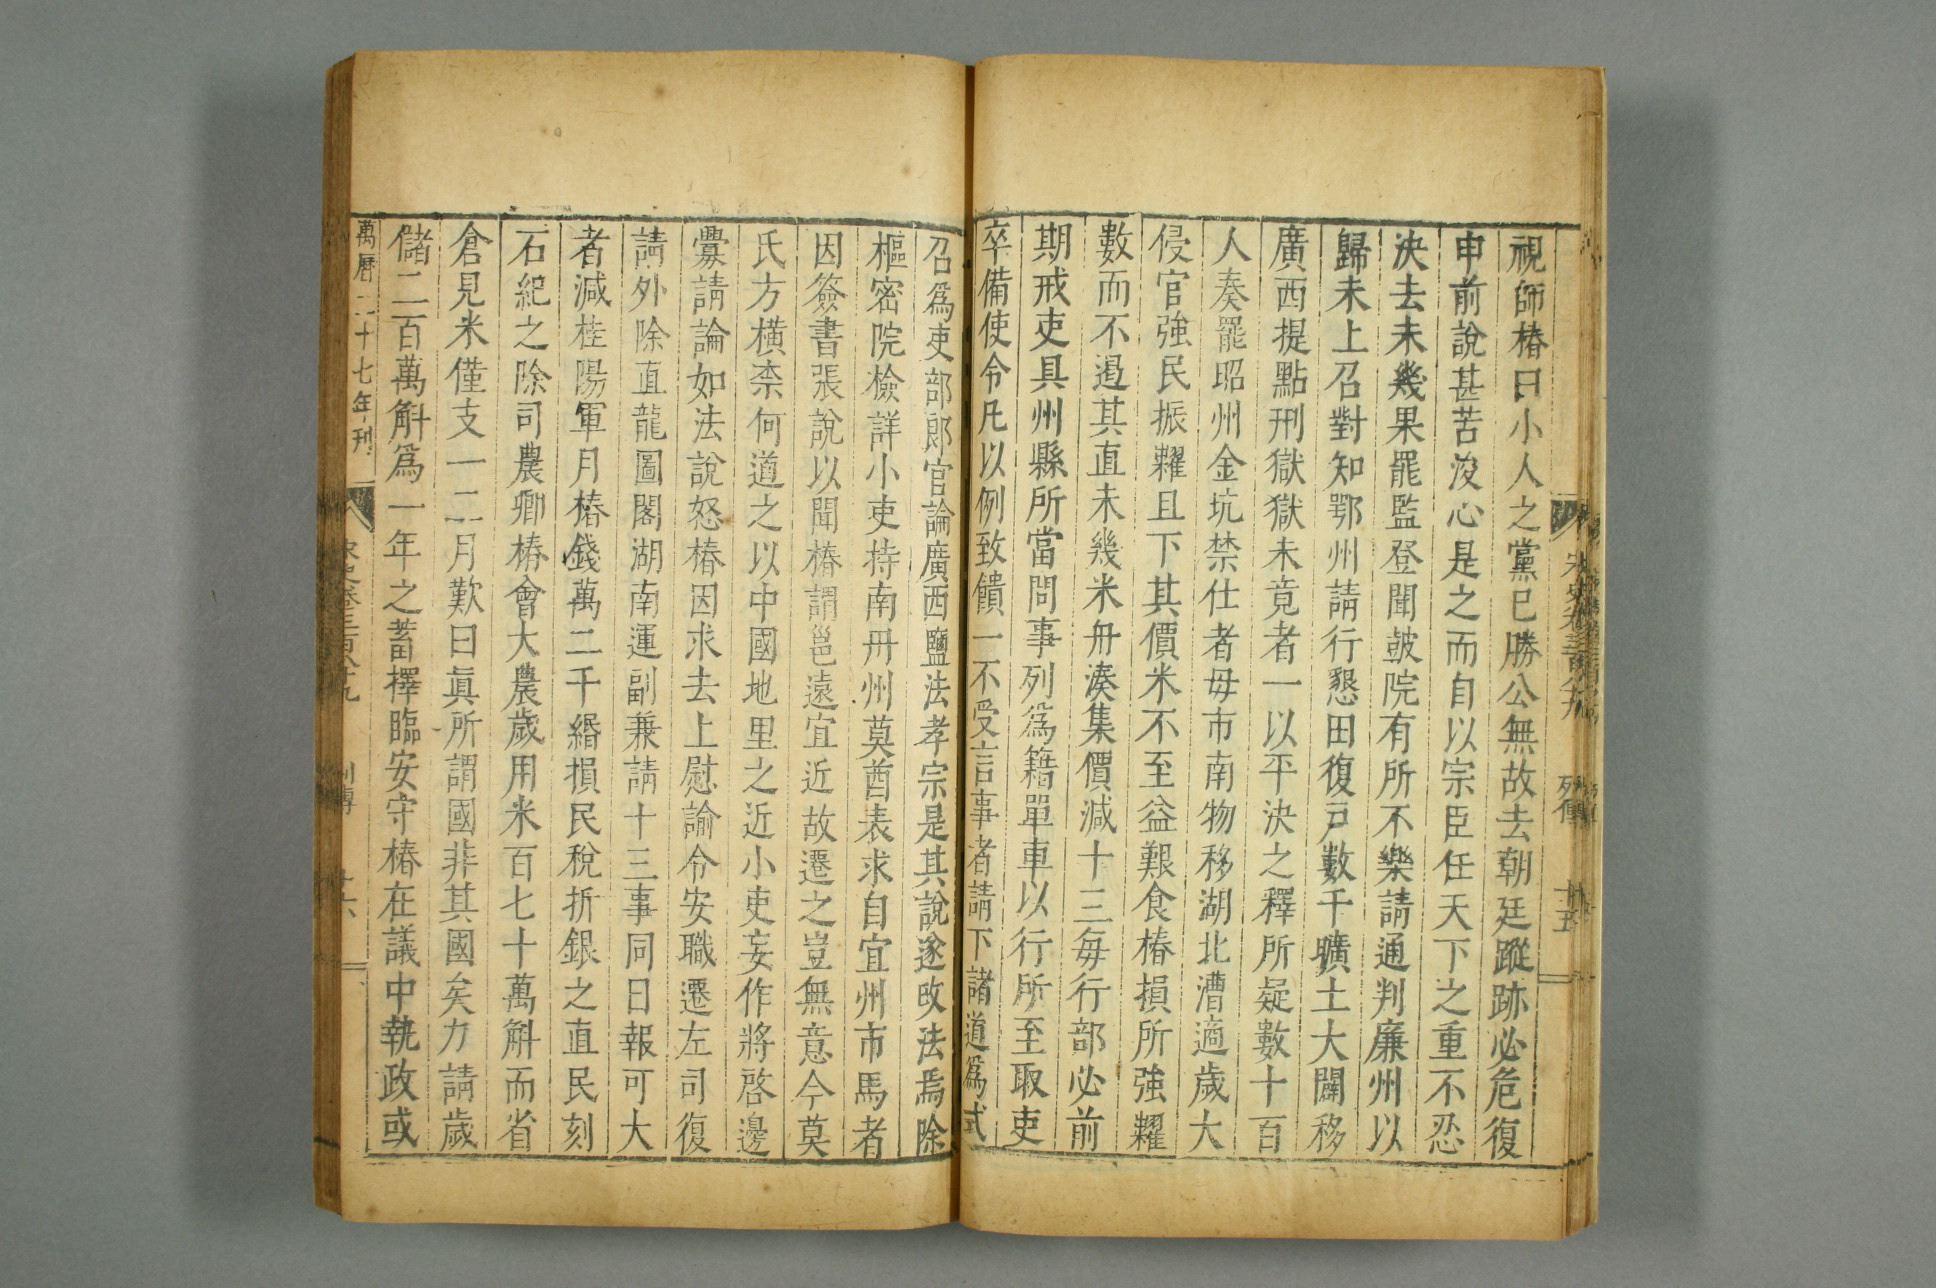 宋史卷三百八十九
列傳
十五
視師椿曰小人之黨已勝公無故去朝廷蹤跡必危復
申前說甚苦浚心是之而自以宗臣任天下之重不忍
決去未幾果罷監登聞皷院有所不樂請通判廉州以
歸未上召對知鄂州請行懇田復戸數千曠土大闢移
廣西提點刑獄獄未竟者一以平決之釋所疑數十百
人奏罷昭州金坑禁仕者毋市南物移湖北漕適歲大
侵官強民振糴且下其價米不至益艱食椿損所強糴
數而不遏其直未幾米舟湊集價減十三每行部必前
期戒吏具州縣所當問事列爲籍單車以行所至取吏
卒備使令凡以例致饋一不受言事者請下諸道爲式
召爲吏部郎官論廣西鹽法孝宗是其說遂改法焉除
樞密院檢詳小吏持南丹州莫酋表求自宜州市馬者
因簽書張說以聞椿謂邕遠宜近故遷之豈無意今莫
氏方横柰何道之以中國地里之近小吏妄作將啓邊
釁請論如法說怒椿因求去上慰諭令安職遷左司復
請外除直龍圖閣湖南運副兼請十三事同日報可大
者減桂陽軍月樁錢萬二千緡損民稅折銀之直民刻
石紀之除司農卿椿會大農歲用米百七十萬斛而省
倉見米僅支一二月歎曰眞所謂國非其國矣力請歲
儲二百萬斛爲一年之蓄擇臨安守椿在議中執政或
萬曆二十七年刊
宋史卷三百八十九
列傳
十六